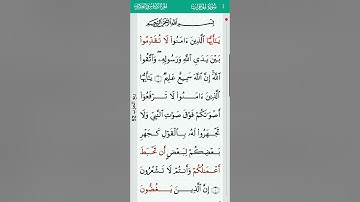 بِسْمِ ٱللَّهِ ٱلرَّحْمَٰنِ ٱلرَّحِيمِ
يَٰٓأَيُّهَا ٱلَّذِينَ ءَامَنُوا۟ لَا تُقَدِّمُوا۟
بَيْنَ يَدَىِ ٱللَّهِ وَرَسُولِهِۦ ۖ وَٱتَّقُوا۟
ٱللَّهَ ۚ إِنَّ ٱللَّهَ سَمِيعٌ عَلِيمٌ ۝١ يَٰٓأَيُّهَا
ٱلَّذِينَ ءَامَنُوا۟ لَا تَرْفَعُوٓا۟
أَصْوَٰتَكُمْ فَوْقَ صَوْتِ ٱلنَّبِىِّ وَلَا
تَجْهَرُوا۟ لَهُۥ بِٱلْقَوْلِ كَجَهْرِ
بَعْضِكُمْ لِبَعْضٍ أَن تَحْبَطَ
أَعْمَٰلُكُمْ وَأَنتُمْ لَا تَشْعُرُونَ
۝٢ إِنَّ ٱلَّذِينَ يَغُضُّونَ
ربع الحزب 52